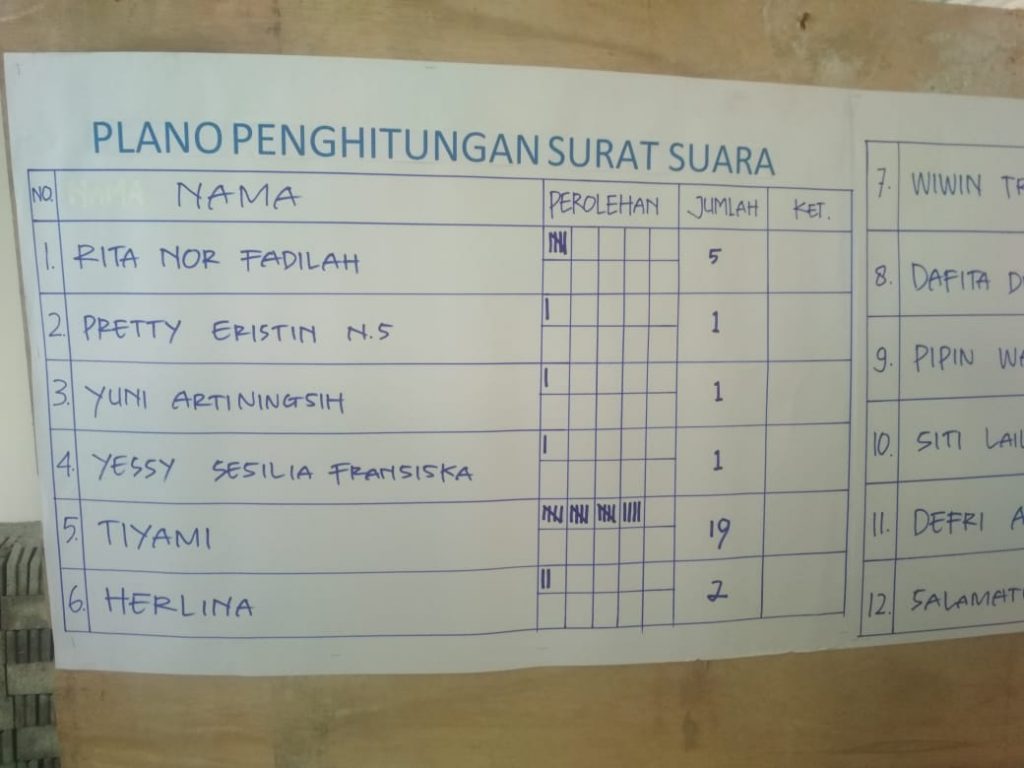 PLANO PENGHITUNGAN SURAT SUARA
NO. NAMA PEROLEHAN JUMLAH KET.
1. RITA NOR FADILAH 5
2. PRETTY ERISTIN N.S 1
3. YUNI ARTININGSIH 1
4. YESSY SESILIA FRANSISKA 1
5. TIYAMI 19
6. HERLINA 2
7. WIWIN
8. DAFITA
9. PIPIN
10. SITI
11. DEFRI
12.